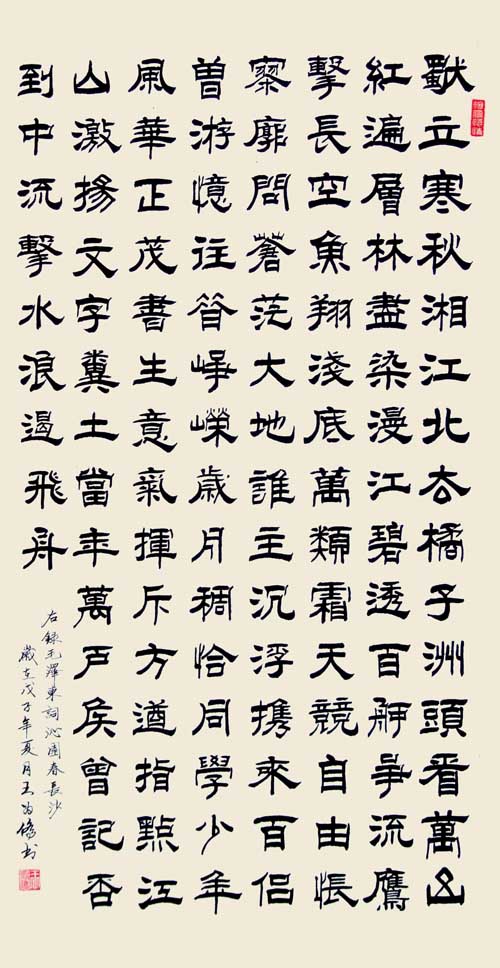 獨立寒秋湘江北去橘子洲頭看萬山
紅遍層林盡染漫江碧透百舸爭流鷹
擊長空魚翔淺底萬類霜天競自由悵
寥廓問蒼茫大地誰主沉浮携來百侶
曾游憶往昔崢嶸歲月稠恰同學少年
風華正茂書生意氣揮斥方遒指點江
山激揚文字糞土當年萬戶侯曾記否
到中流擊水浪遏飛舟
右錄毛澤東詞沁園春長沙
歲在戊子年夏月王書